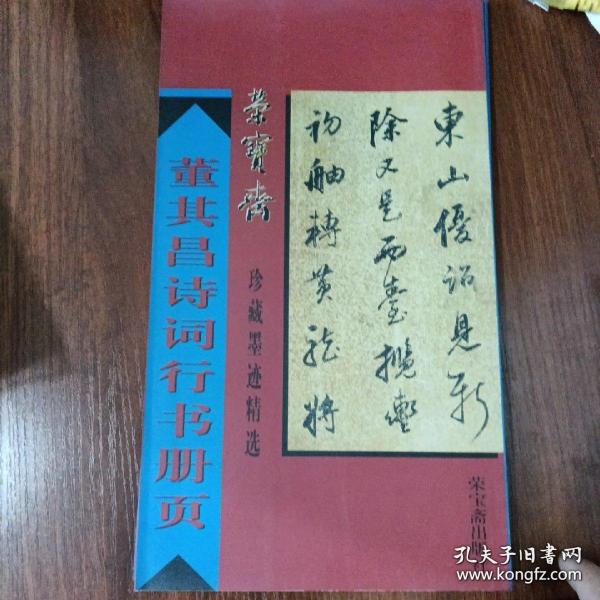 東山優詔見新
除又是西臺攬轡
初舳轉黄龍將
榮寶齋
珍藏墨迹精选
董其昌诗词行书册页
荣宝斋出版
孔夫子旧书网
www.kongfz.com